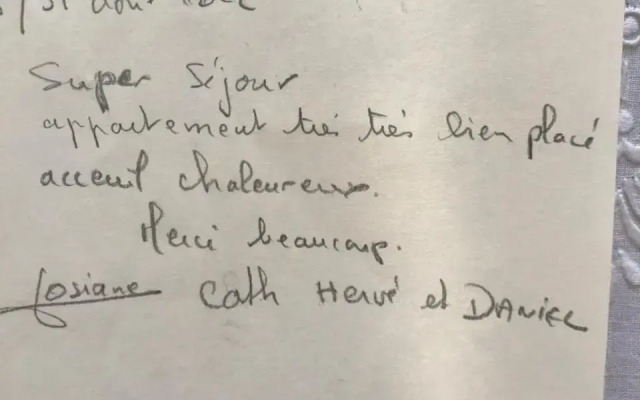 Super séjour
appartement très très bien placé
acceuil chaleureux.
Merci beaucoup.
Josiane Cath Hervé et DANIEL